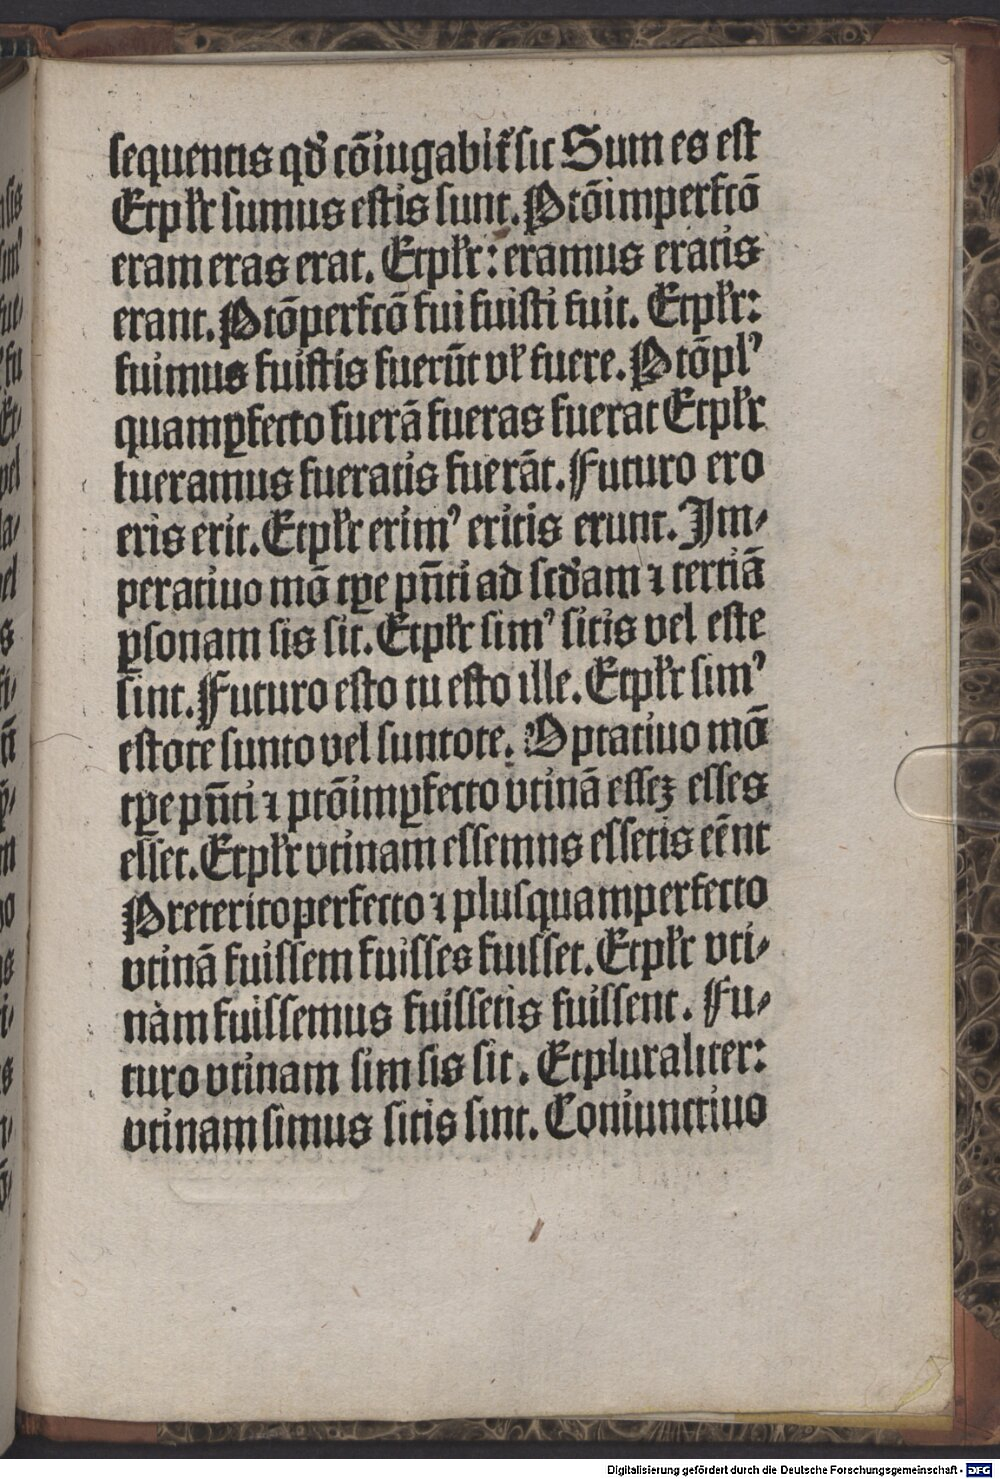 sequentis qð cõiugabit̃ sic Sum es est
Et pĺr sumus estis sunt. Ptõ imperfctõ
eram eras erat. Et pĺr: eramus eratis
erant. Ptõ perfctõ fui fuisti fuit. Et pĺr:
fuimus fuistis fuerũt vĺ fuere. Ptõ plꝰ
quamꝑfecto fuerã fueras fuerat Et pĺr
fueramus fueratis fuerãt. Futuro ero
eris erit. Et pĺr erimꝰ eritis erunt. Im⸗
peratiuo mõ tꝑe pñti ad scðam ⁊ tertiã
ꝑsonam sis sit. Et pĺr simꝰ sitis vel este
sint. Futuro esto tu esto ille. Et pĺr simꝰ
estote sunto vel suntote. Optatiuo mõ
tꝑe pñti ⁊ ptõ imꝑfecto vtinã essez esses
esset. Et pĺr vtinam essemus essetis eẽnt
Preterito perfecto ⁊ plusquamperfecto
vtinã fuissem fuisses fuisset. Et pĺr vti⸗
nam fuissemus fuissetis fuissent. Fu⸗
turo vtinam sim sis sit. Et pluraliter:
vtinam simus sitis sint. Coniunctiuo
Digitalisierung gefördert durch die Deutsche Forschungsgemeinschaft - DFG